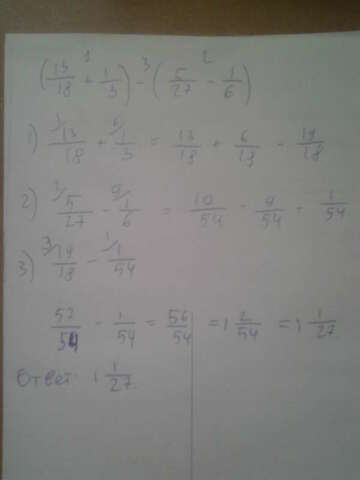 1 3 2
(13/18 + 1/3) - (5/27 - 1/6)
1) 1/ 13/18 + 6/ 1/3 = 13/18 + 6/18 = 19/18
2) 2/ 5/27 - 9/ 1/6 = 10/54 - 9/54 = 1/54
3) 3/ 19/18 - 1/ 1/54
57/54 - 1/54 = 56/54 = 1 2/54 = 1 1/27
Ответ: 1 1/27